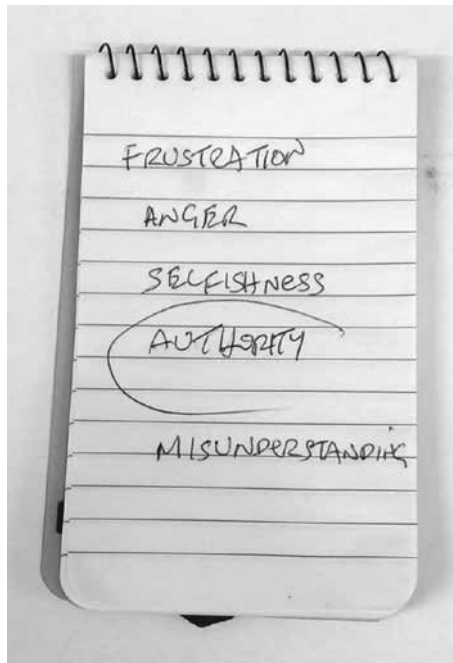 FRUSTRATION
ANGER
SELFISHNESS
AUTHORITY
MISUNDERSTANDING